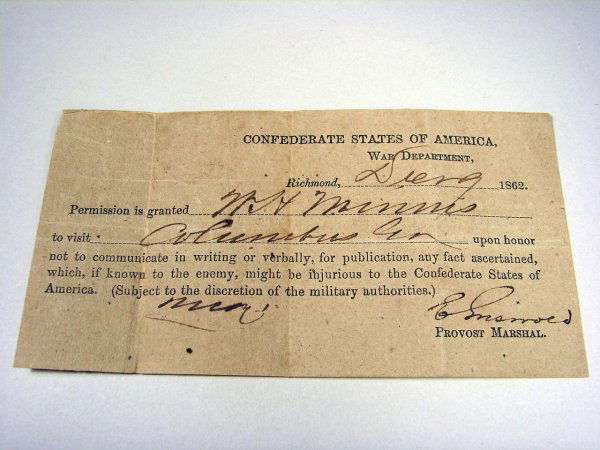 CONFEDERATE STATES OF AMERICA,
WAR DEPARTMENT,
Richmond, Dec 9 1862.
Permission is granted W. H. Minnis
to visit Columbus Ga upon honor
not to communicate in writing or verbally, for publication, any fact ascertained,
which, if known to the enemy, might be injurious to the Confederate States of
America. (Subject to the discretion of the military authorities.)
E Griswold
PROVOST MARSHAL.